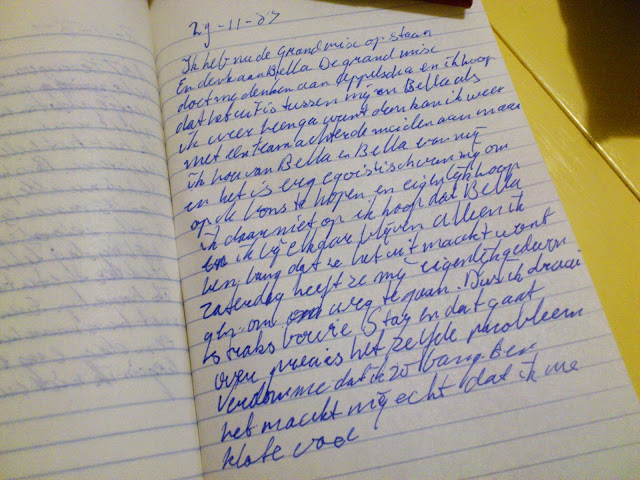 29-11-87
Ik heb nu de grandmix op staan
En denk aan Bella De grand mix
doet me denken aan Appelscha en ik hoop
dat het uit is tussen mij en Bella als
ik weer heen ga want dan kan ik weer
met een team achter de meiden aan maar
ik hou van Bella en Bella van mij
en het is erg egoistisch van mij om
op de bons te hopen en eigenlijk hoop
ik daar niet op ik hoop dat Bella
en ik bij elkaar blijven alleen ik
ben bang dat ze het uit maakt want
zaterdag heeft ze mij eigenlijk gedwon
gen om weg te gaan. Dus ik draai
is straks Stay en dat gaat
over precies het zelfde probleem
verdomme dat ik zo bang ben
het maakt mij echt dat ik me
klote voel